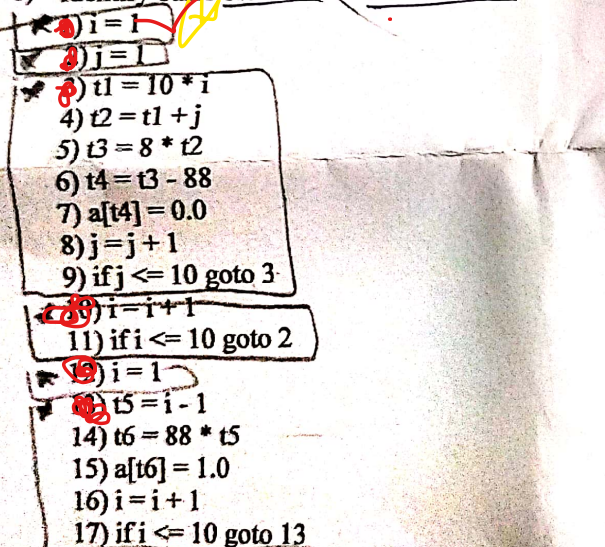 1) i = 1
2) j = 1
3) t1 = 10 * i
4) t2 = t1 + j
5) t3 = 8 * t2
6) t4 = t3 - 88
7) a[t4] = 0.0
8) j = j + 1
9) if j <= 10 goto 3
10) i = i + 1
11) if i <= 10 goto 2
12) i = 1
13) t5 = i - 1
14) t6 = 88 * t5
15) a[t6] = 1.0
16) i = i + 1
17) if i <= 10 goto 13